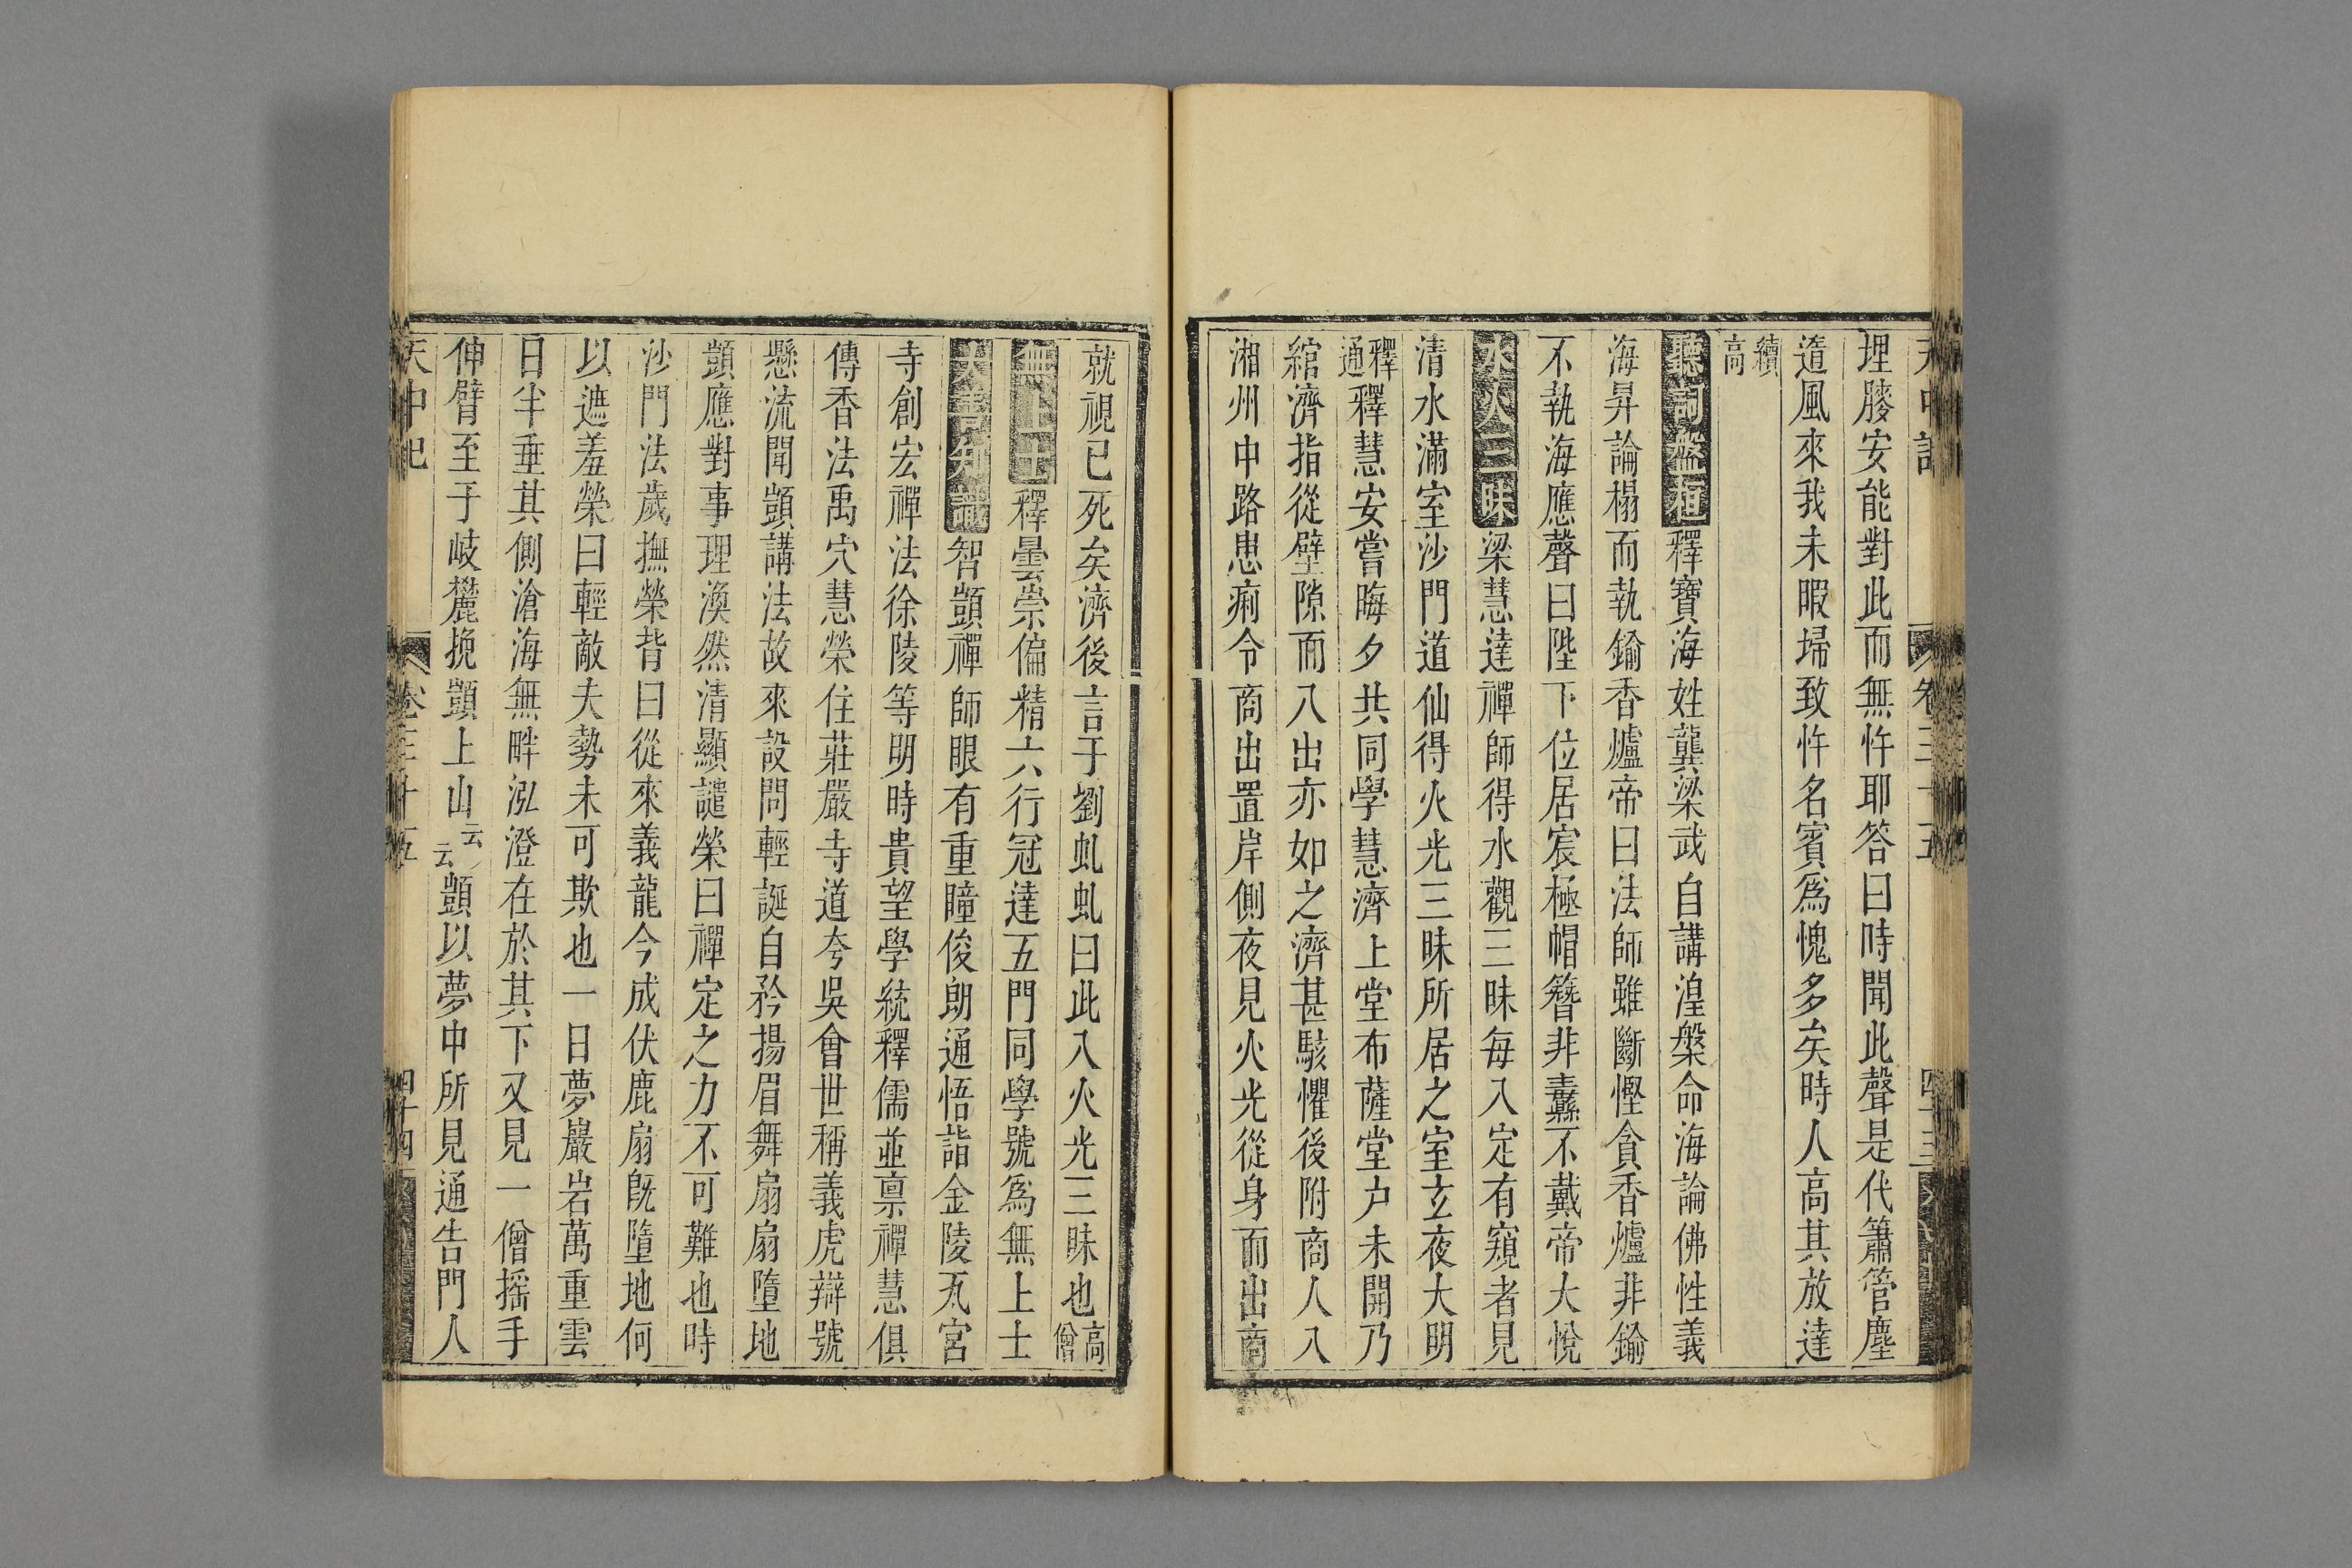 天中記
卷三十五
四十三
埋賸安能對此而無忤耶答曰時聞此聲是代簫管塵
隨風來我未暇埽致忤名賓爲愧多矣時人高其放達
續高
聽詞盤桓釋寶海姓龔梁武自講湼槃命海論佛性義
海昇論榻而執鍮香爐帝曰法師雖斷慳貪香爐非鍮
不執海應聲曰陛下位居宸極帽簪非纛不戴帝大悅
水火三昧梁慧達禪師得水觀三昧每入定有窺者見
清水滿室沙門道仙得火光三昧所居之室玄夜大明
釋通釋慧安嘗晦夕共同學慧濟上堂布薩堂户未開乃
綰濟指從壁隙而入出亦如之濟甚駭懼後附商人入
湘州中路患痢令商出置岸側夜見火光從身而出商
就視已死矣濟後言于劉虬虬曰此入火光三昧也高僧
無上士釋曇崇偏精六行冠達五門同學號爲無上士
大善知識智顗禪師眼有重瞳俊朗通悟詣金陵瓦宮
寺創宏禪法徐陵等明時貴望學統釋儒並禀禪慧俱
傳香法禹穴慧榮住莊嚴寺道夸吳會世稱義虎辯號
懸流聞顗講法故來設問輕誕自矜揚眉舞扇扇墮地
顗應對事理渙然清顯譴榮曰禪定之力不可難也時
沙門法歲撫榮背曰從來義龍今成伏鹿扇旣墮地何
以遮羞榮曰輕敵夫勢未可欺也一日夢巖岩萬重雲
日半垂其側滄海無畔泓澄在於其下又見一僧摇手
伸臂至于岐麓挽顗上山云云顗以夢中所見通告門人
天中記
卷三十五
四十四